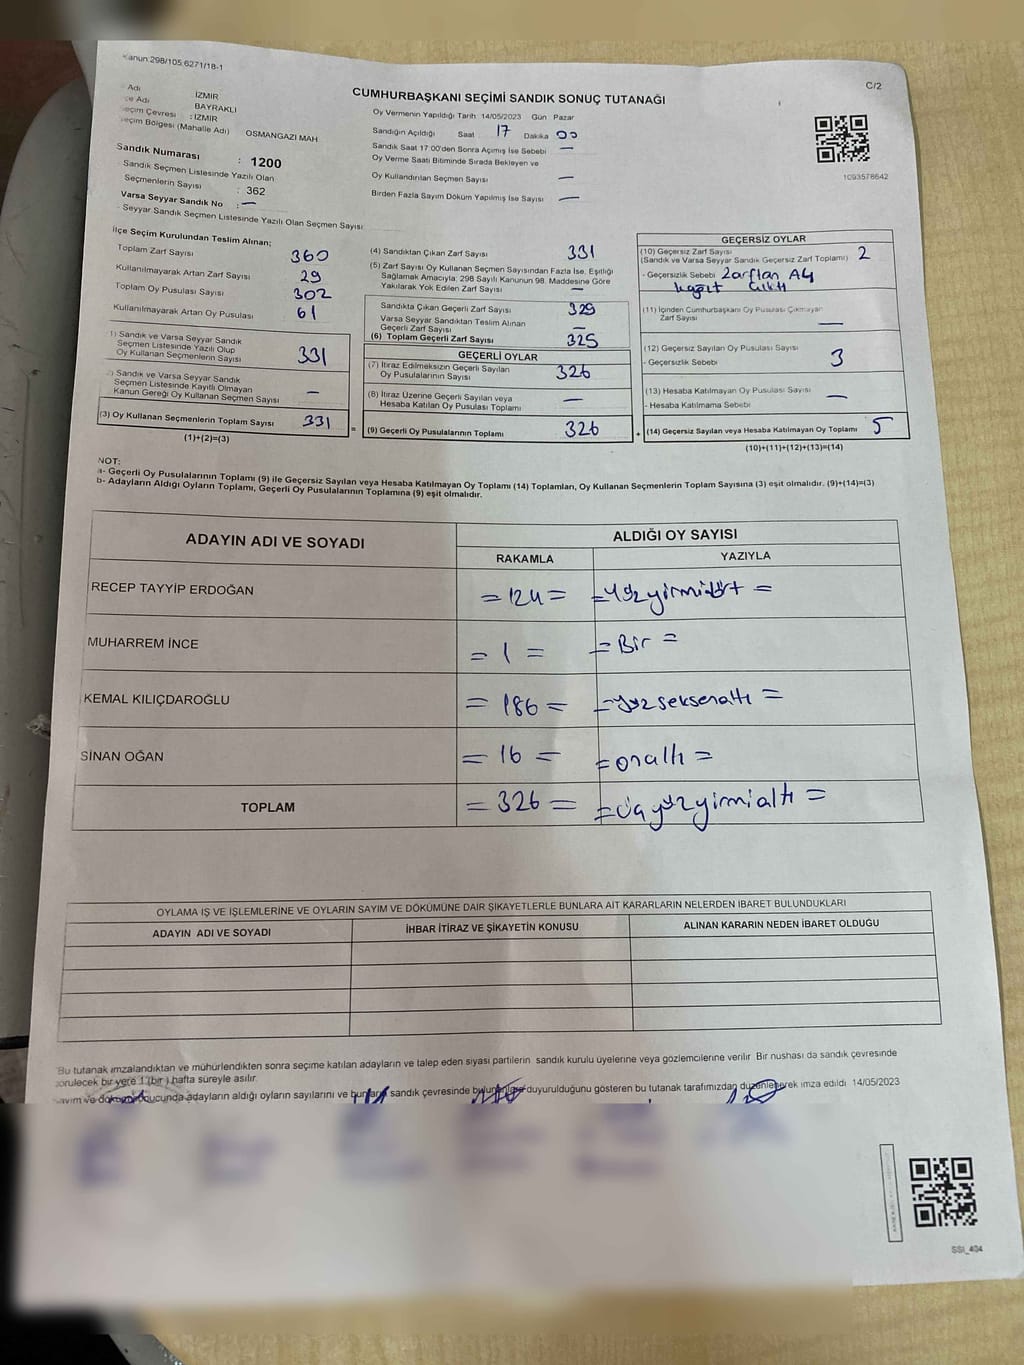 Kanun:298/105;6271/18-1
C/2
CUMHURBAŞKANI SEÇİMİ SANDIK SONUÇ TUTANAĞI
Adı İZMİR
Adı BAYRAKLI
Seçim Çevresi : İZMİR
Seçim Bölgesi (Mahalle Adı) OSMANGAZI MAH
Sandık Numarası : 1200
Sandık Seçmen Listesinde Yazılı Olan
Seçmenlerin Sayısı : 362
Varsa Seyyar Sandık No : —
Seyyar Sandık Seçmen Listesinde Yazılı Olan Seçmen Sayısı
Oy Vermenin Yapıldığı Tarih 14/05/2023 Gün Pazar
Sandığın Açıldığı Saat 17 Dakika 00
Sandık Saat 17:00'den Sonra Açımış İse Sebebi —
Oy Verme Saati Bitiminde Sırada Bekleyen ve
Oy Kullandırılan Seçmen Sayısı —
Birden Fazla Sayım Döküm Yapılmış İse Sayısı —
1093578642
İlçe Seçim Kurulundan Teslim Alınan;
Toplam Zarf Sayısı 360
Kullanılmayarak Artan Zarf Sayısı 29
Toplam Oy Pusulası Sayısı 302
Kullanılmayarak Artan Oy Pusulası 61
1) Sandık ve Varsa Seyyar Sandık
Seçmen Listesinde Yazılı Olup
Oy Kullanan Seçmenlerin Sayısı 331
2) Sandık ve Varsa Seyyar Sandık
Seçmen Listesinde Kayıtlı Olmayan
Kanun Gereği Oy Kullanan Seçmen Sayısı —
(3) Oy Kullanan Seçmenlerin Toplam Sayısı 331 =
(1)+(2)=(3)
(4) Sandıktan Çıkan Zarf Sayısı 331
(5) Zarf Sayısı Oy Kullanan Seçmen Sayısından Fazla İse, Eşitliği
Sağlamak Amacıyla; 298 Sayılı Kanunun 98. Maddesine Göre
Yakılarak Yok Edilen Zarf Sayısı —
Sandıkta Çıkan Geçerli Zarf Sayısı 329
Varsa Seyyar Sandıktan Teslim Alınan
Geçerli Zarf Sayısı —
(6) Toplam Geçerli Zarf Sayısı 325
GEÇERLİ OYLAR
(7) İtiraz Edilmeksizin Geçerli Sayılan
Oy Pusulalarının Sayısı 326
(8) İtiraz Üzerine Geçerli Sayılan veya
Hesaba Katılan Oy Pusulası Toplamı —
(9) Geçerli Oy Pusulalarının Toplamı 326 +
GEÇERSİZ OYLAR
(10) Geçersiz Zarf Sayısı 2
(Sandık ve Varsa Seyyar Sandık Geçersiz Zarf Toplamı)
- Geçersizlik Sebebi Zarftan A4
kağıt çıktı
(11) İçinden Cumhurbaşkanı Oy Pusulası Çıkmayan
Zarf Sayısı —
(12) Geçersiz Sayılan Oy Pusulası Sayısı 3
- Geçersizlik Sebebi
(13) Hesaba Katılmayan Oy Pusulası Sayısı —
- Hesaba Katılmama Sebebi
(14) Geçersiz Sayılan veya Hesaba Katılmayan Oy Toplamı 5
(10)+(11)+(12)+(13)=(14)
NOT:
a- Geçerli Oy Pusulalarının Toplamı (9) ile Geçersiz Sayılan veya Hesaba Katılmayan Oy Toplamı (14) Toplamları, Oy Kullanan Seçmenlerin Toplam Sayısına (3) eşit olmalıdır. (9)+(14)=(3)
b- Adayların Aldığı Oyların Toplamı, Geçerli Oy Pusulalarının Toplamına (9) eşit olmalıdır.
ADAYIN ADI VE SOYADI ALDIĞI OY SAYISI
RAKAMLA YAZIYLA
RECEP TAYYİP ERDOĞAN =124= =Yüzyirmidört=
MUHARREM İNCE =1= =Bir=
KEMAL KILIÇDAROĞLU =186= =Yüzseksenaltı=
SİNAN OĞAN =16= =onaltı=
TOPLAM =326= =üçyüzyirmialtı=
OYLAMA İŞ VE İŞLEMLERİNE VE OYLARIN SAYIM VE DÖKÜMÜNE DAİR ŞİKAYETLERLE BUNLARA AİT KARARLARIN NELERDEN İBARET BULUNDUKLARI
ADAYIN ADI VE SOYADI İHBAR İTİRAZ VE ŞİKAYETİN KONUSU ALINAN KARARIN NEDEN İBARET OLDUĞU
Bu tutanak imzalandıktan ve mühürlendikten sonra seçime katılan adayların ve talep eden siyasi partilerin sandık kurulu üyelerine veya gözlemcilerine verilir. Bir nushası da sandık çevresinde
görülecek bir yere 1 (bir) hafta süreyle asılır.
Sayım ve döküm sonucunda adayların aldığı oyların sayılarını ve bunların sandık çevresinde duyurulduğunu gösteren bu tutanak tarafımızdan düzenlenerek imza edildi 14/05/2023
SSI_404